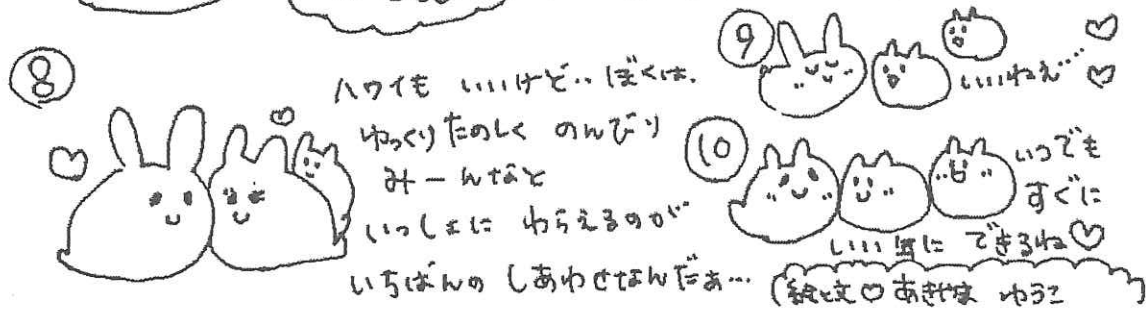 ⑧
ハワイも いいけど‥ぼくは、
ゆっくり たのしく のんびり
みーんなと
いっしょに わらえるのが
いちばんの しあわせなんだぁ…
⑨
いいねぇ…
⑩
いつでも
すぐに
いい気に できるね♡
絵と文♡ あきやま ゆうこ